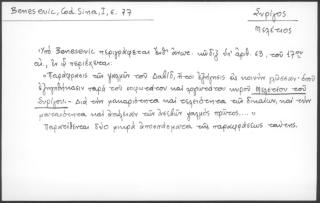 Benesevic, Cod. Sina, I, σ. 77
Συρίγος
Μελέτιος
Ὑπὸ Benesevic περιγράφεται κῶδιξ ὑπ' ἀριθ. 63, τοῦ 17ου
αἰ., ἐν ᾧ περιέχεται:
«Παράφρασις τῶν ψαλμῶν τοῦ Δαβίδ, ἤτοι ἐξήγησις εἰς κοινὴν γλῶσσαν· ὁποῦ
ἐξηγήθησαν παρὰ τοῦ σοφωτάτου καὶ λογιωτάτου κυροῦ Μελετίου τοῦ
Συρίγου.- Διὰ τὴν μακαριότητα καὶ τελειότητα τῶν δικαίων, καὶ τὴν
ματαιότητα καὶ ἀπώλειαν τῶν ἀσεβῶν ψαλμὸς πρῶτος....»
Παρατίθενται δύο μικρὰ ἀποσπάσματα τῆς παραφράσεως ταύτης.